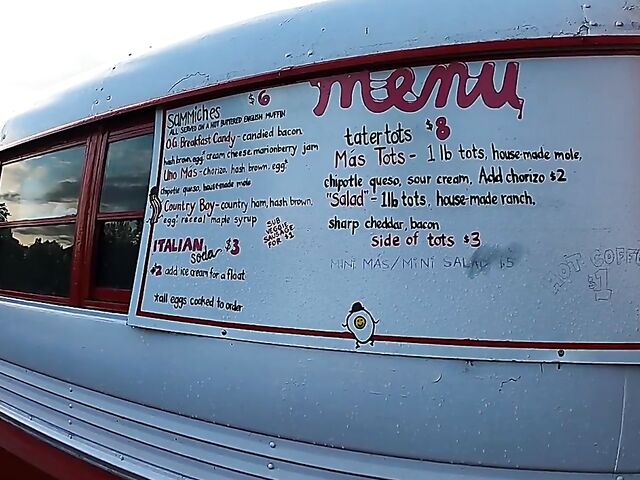 menu
Sammiches $6
ALL SERVED ON A HOT BUTTERED ENGLISH MUFFIN
O.G. Breakfast Candy - candied bacon,
hash brown, egg* cream cheese, marionberry jam
Uno Más - chorizo, hash brown, egg*
chipotle queso, house-made mole
Country Boy - country ham, hash brown,
egg* real maple syrup
SUB VEGGIE SAUSAGE FOR $1
ITALIAN soda - $3
+2 add ice cream for a float
*all eggs cooked to order
tatertots $8
Más Tots - 1 lb tots, house-made mole,
chipotle queso, sour cream. Add chorizo $2
"Salad" - 1lb tots, house-made ranch,
sharp cheddar, bacon
side of tots $3
MINI MÁS/MINI SALAD $5
HOT COFFEE
$1